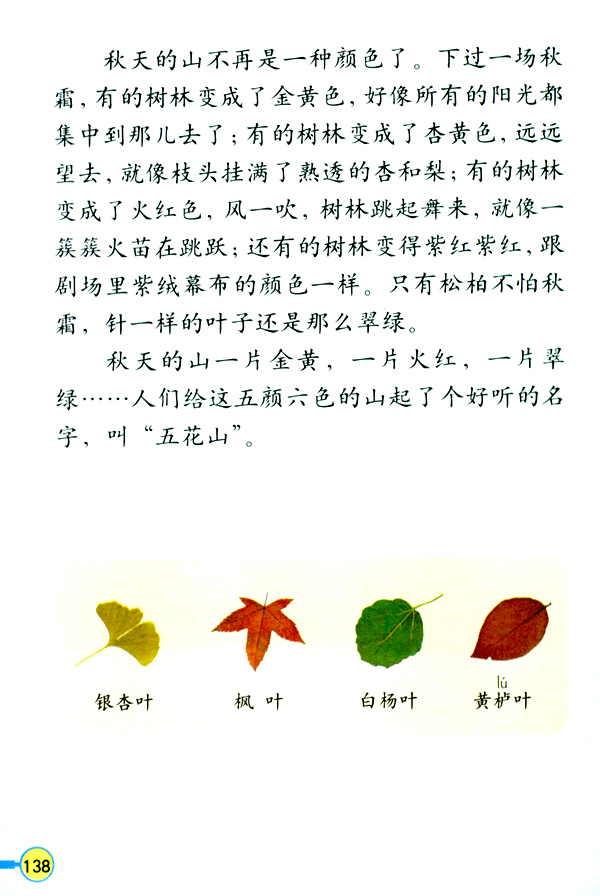 秋天的山不再是一种颜色了。下过一场秋
霜，有的树林变成了金黄色，好像所有的阳光都
集中到那儿去了；有的树林变成了杏黄色，远远
望去，就像枝头挂满了熟透的杏和梨；有的树林
变成了火红色，风一吹，树林跳起舞来，就像一
簇簇火苗在跳跃；还有的树林变得紫红紫红，跟
剧场里紫绒幕布的颜色一样。只有松柏不怕秋
霜，针一样的叶子还是那么翠绿。
秋天的山一片金黄，一片火红，一片翠
绿……人们给这五颜六色的山起了个好听的名
字，叫“五花山”。
银杏叶 枫 叶 白杨叶 黄栌叶
lú
138